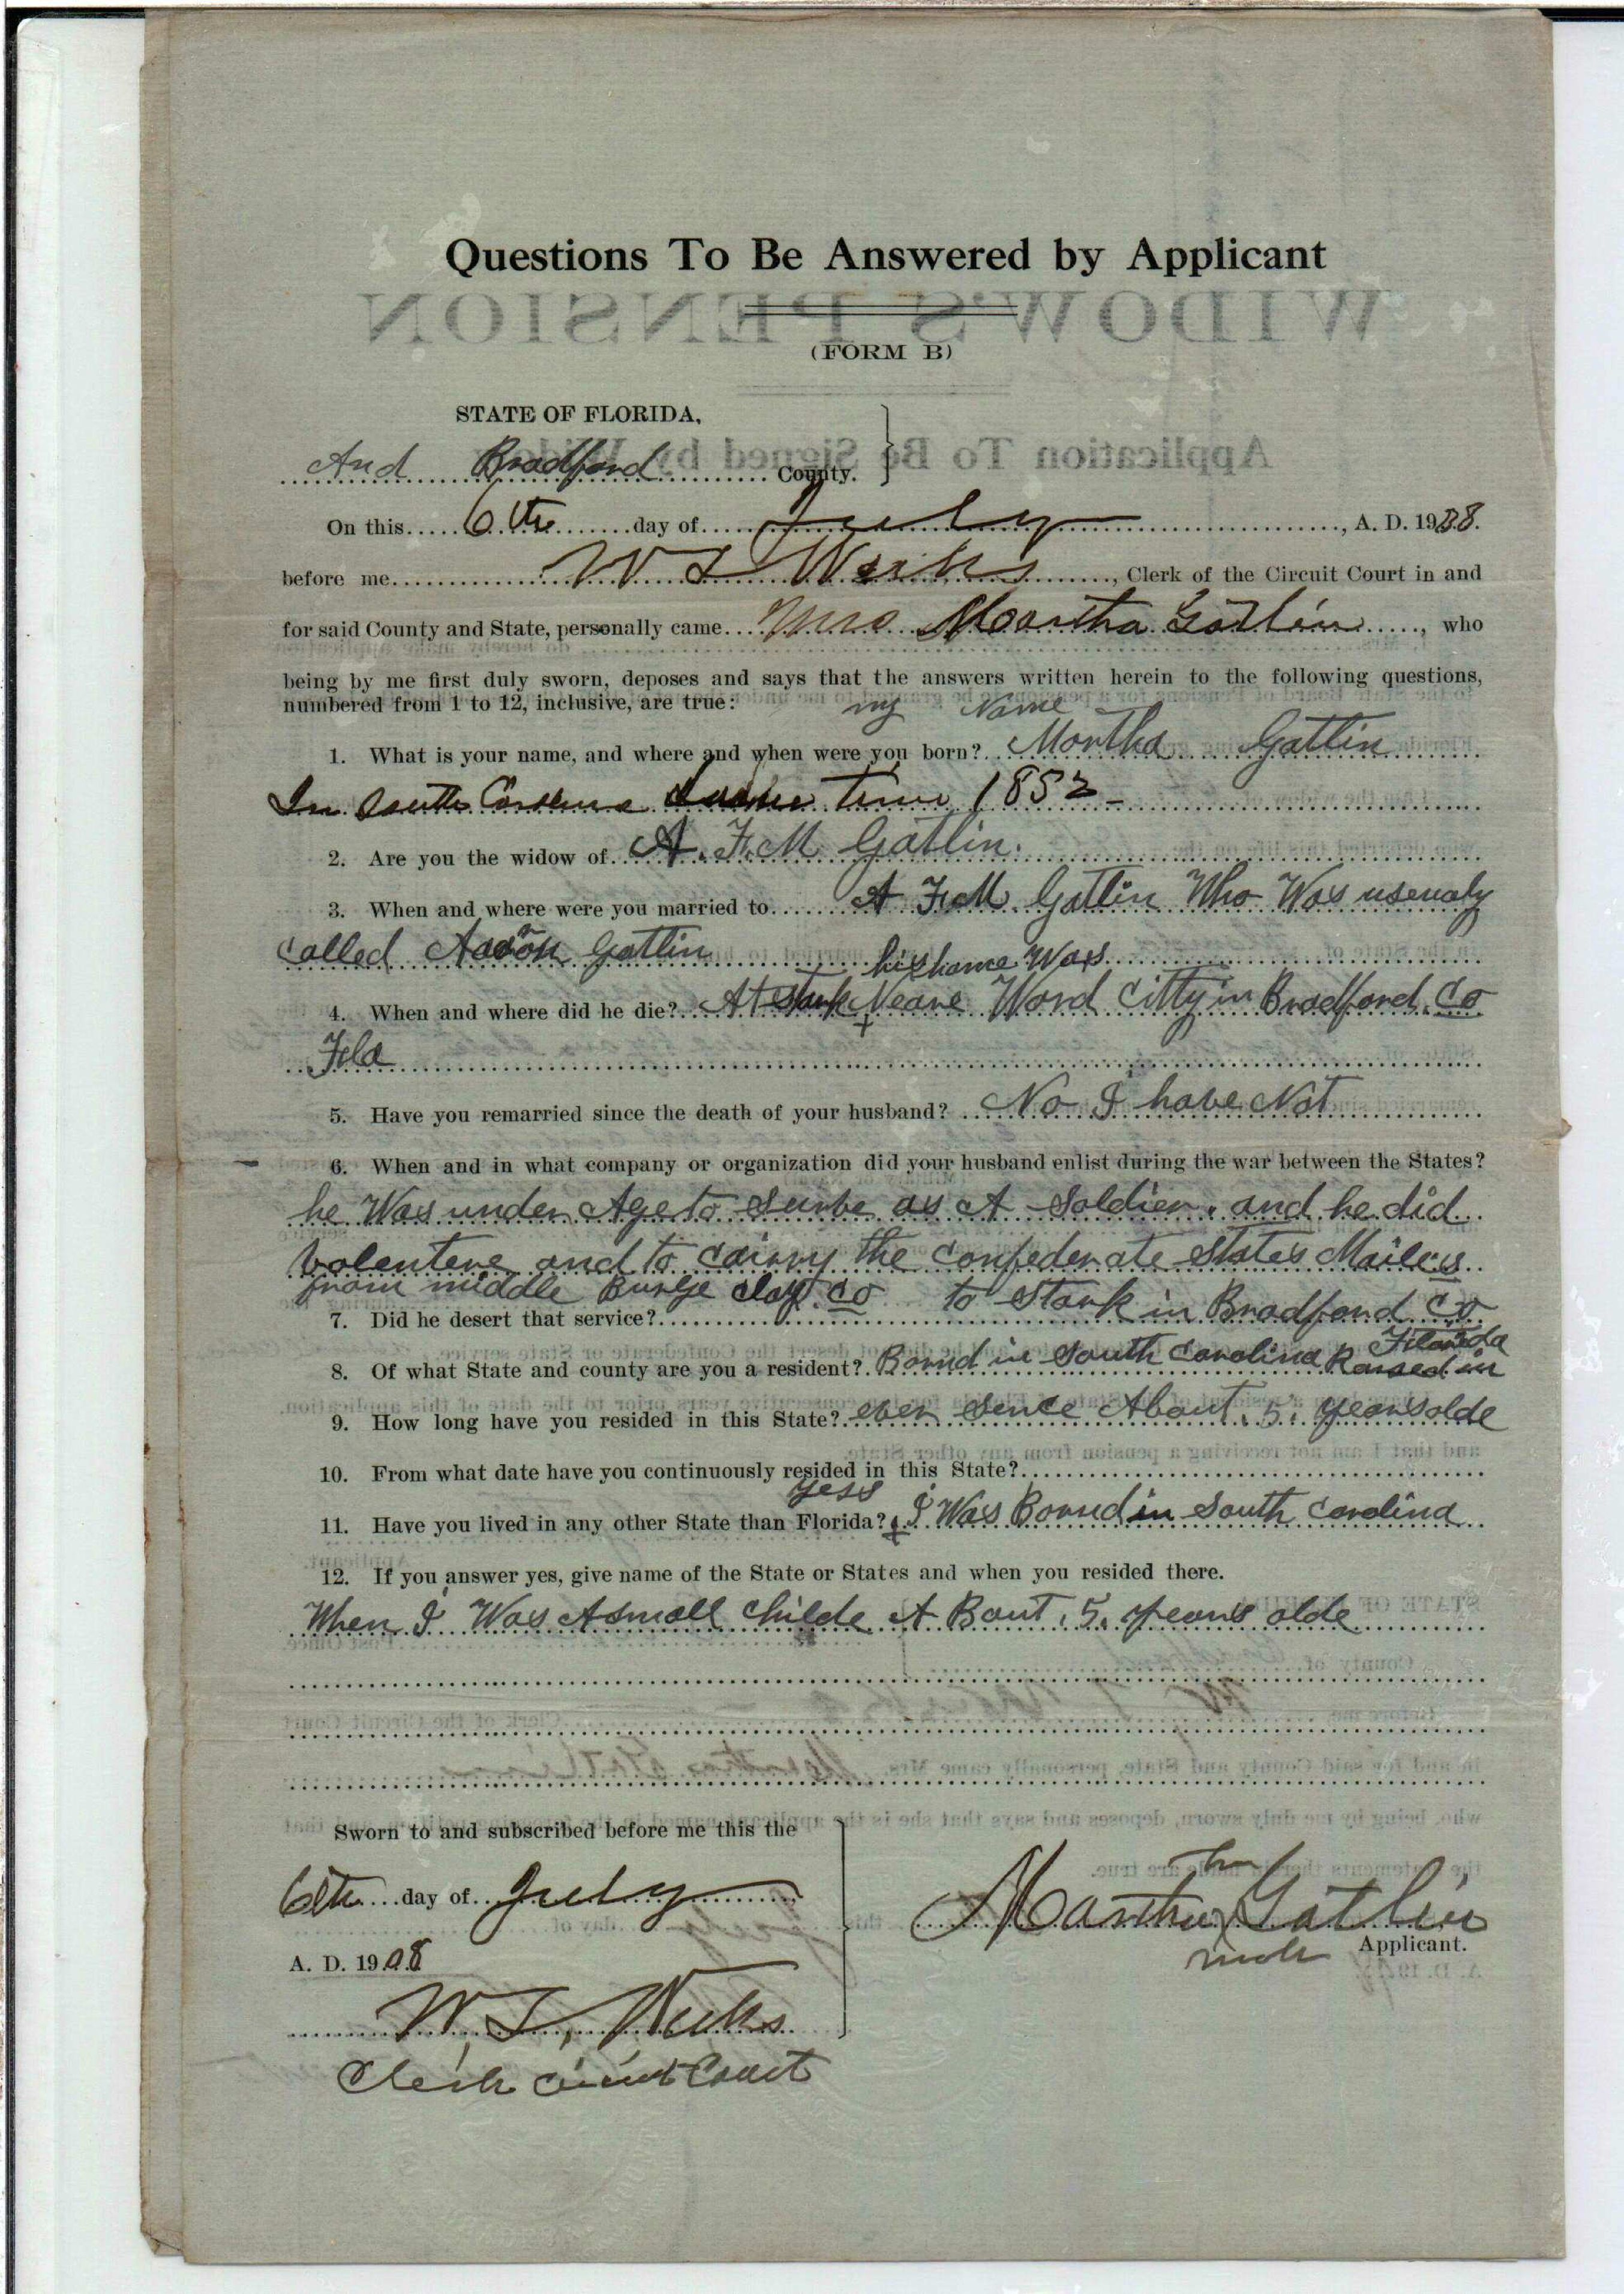 Questions To Be Answered by Applicant
WIDOW'S PENSION
(FORM B)
STATE OF FLORIDA,
Application To Be Signed by
And Bradford County.
On this 6th day of July, A. D. 1908.
before me W T Weeks, Clerk of the Circuit Court in and
for said County and State, personally came Mrs Martha Gatlin, who
being by me first duly sworn, deposes and says that the answers written herein to the following questions,
numbered from 1 to 12, inclusive, are true: my Name
1. What is your name, and where and when were you born? Martha Gatlin
In South Carolina time 1852
2. Are you the widow of A. F. M Gatlin.
3. When and where were you married to A F. M Gatlin Who Was usenaly
called Aaron Gatlin his name Was
4. When and where did he die? At Stark Neare Word Citty in Bradford Co
Fla
5. Have you remarried since the death of your husband? No I have Not
6. When and in what company or organization did your husband enlist during the war between the States?
he Was under Age to Surve as A Soldier. and he did
volentere and to cairry the Confederate States Mailes
from middle Burge Clay Co to Stark in Bradford Co
7. Did he desert that service?
Florida
8. Of what State and county are you a resident? Bornd in South Carolina Raised in
9. How long have you resided in this State? ever sence About .5. years olde
10. From what date have you continuously resided in this State?
yess
11. Have you lived in any other State than Florida? I Was Bornd in South Carolina
12. If you answer yes, give name of the State or States and when you resided there.
When I Was A small Childe A Bout .5. years olde
Sworn to and subscribed before me this the
6th day of July
A. D. 1908
Martha Gatlin
Applicant.
W. T. Weeks
Clerk Circuit Court